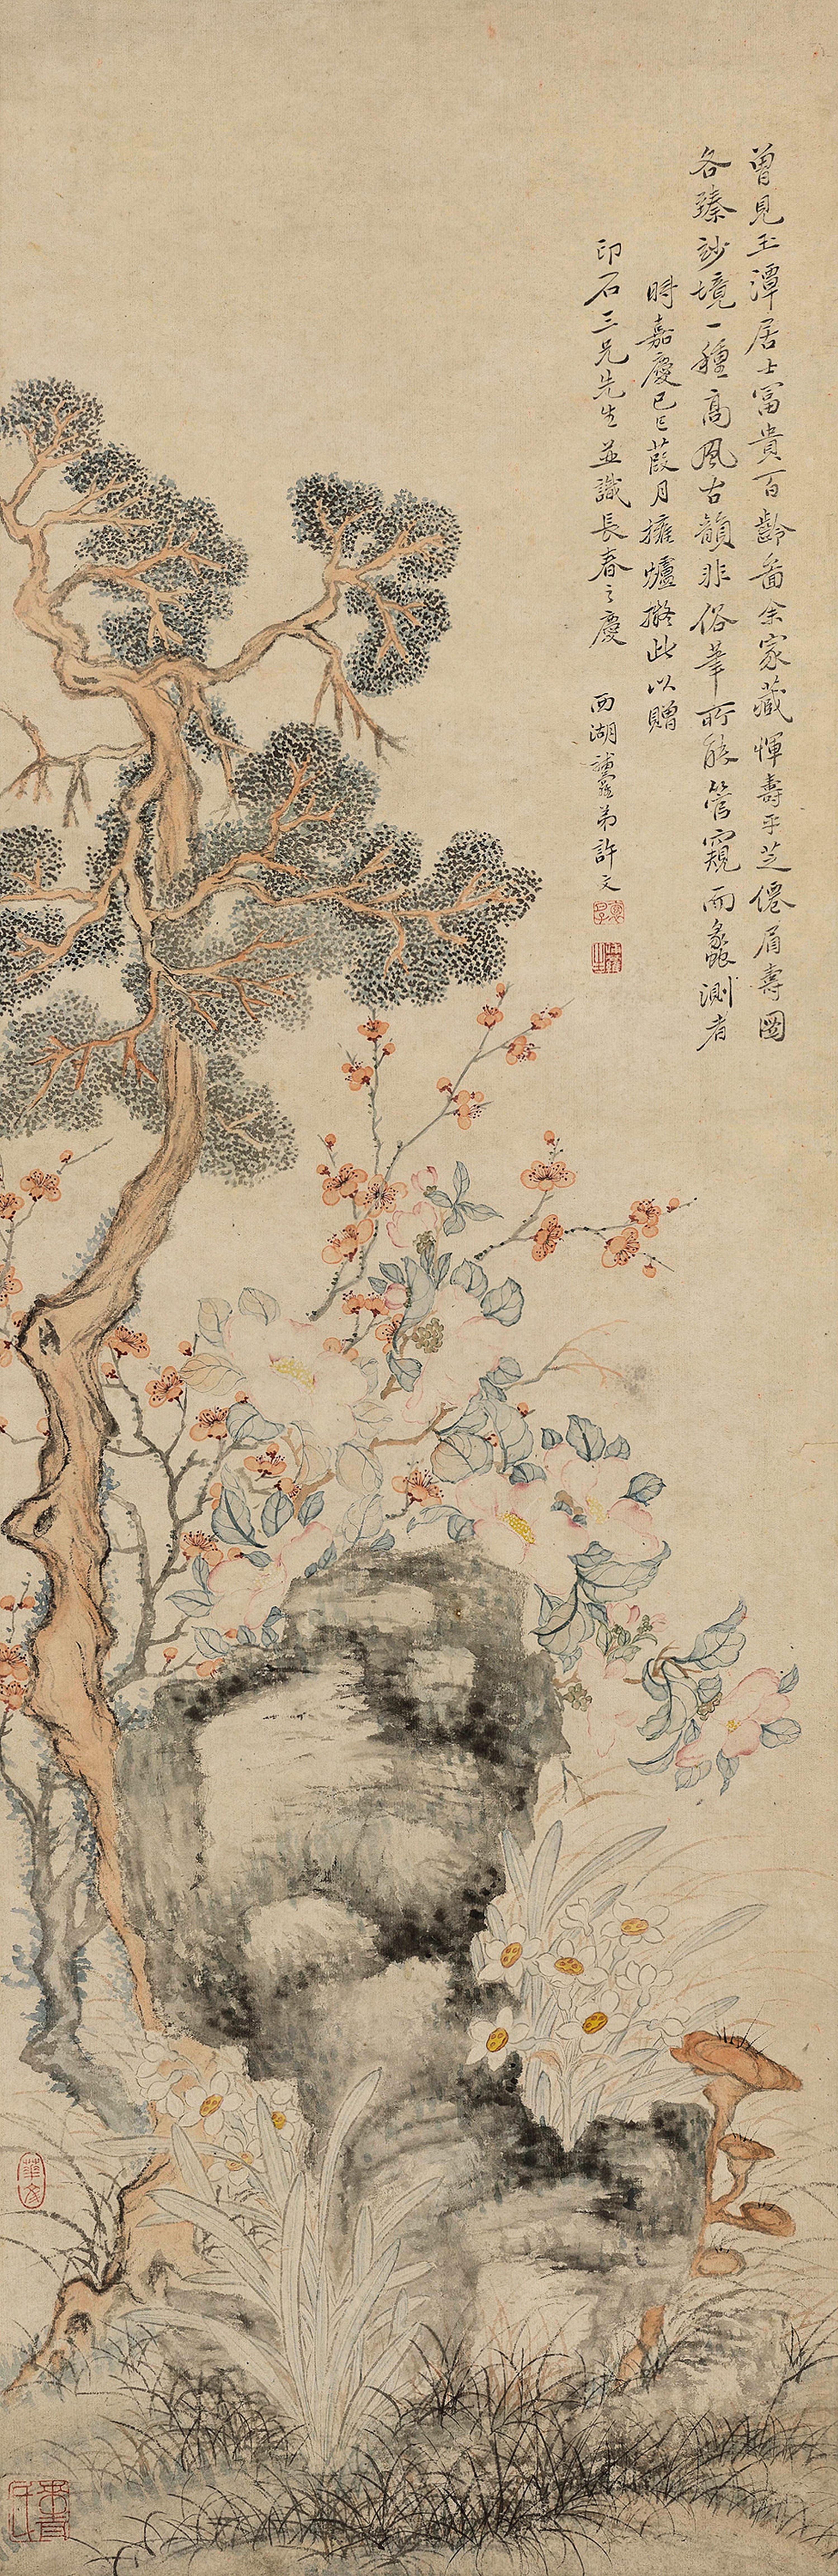 曾見玉潭居士富貴百齡圖余家藏惲壽平芝僊眉壽圖
各臻妙境一種高風古韻非俗筆所能管窺而蠡測者
時嘉慶己巳葭月擁爐擬此以贈
印石三兄先生並識長春之慶
西湖弟許文